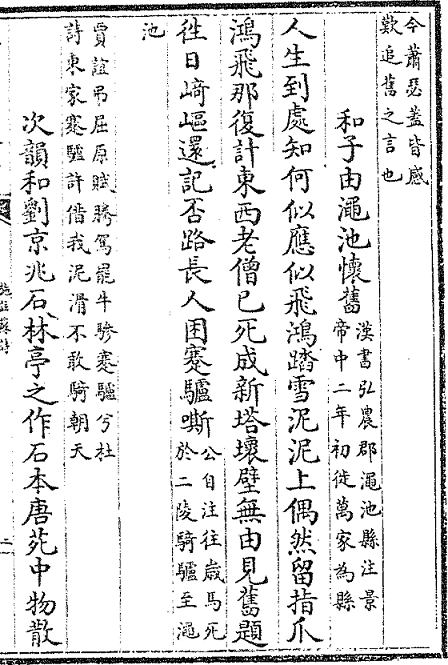 今蕭瑟蓋皆感
歎追舊之言也
和子由澠池懷舊
漢書弘農郡澠池縣注景
帝中二年初徙萬家為縣
人生到處知何似應似飛鴻踏雪泥泥上偶然留指爪
鴻飛那復計東西老僧已死成新塔壞壁無由見舊題
往日崎嶇還記否路長人困蹇驢嘶
公自注往歲馬死
於二陵騎驢至澠
池
賈誼弔屈原賦騰駕罷牛驂蹇驢兮杜
詩東家蹇驢許借我泥滑不敢騎朝天
次韻和劉京兆石林亭之作石本唐苑中物散